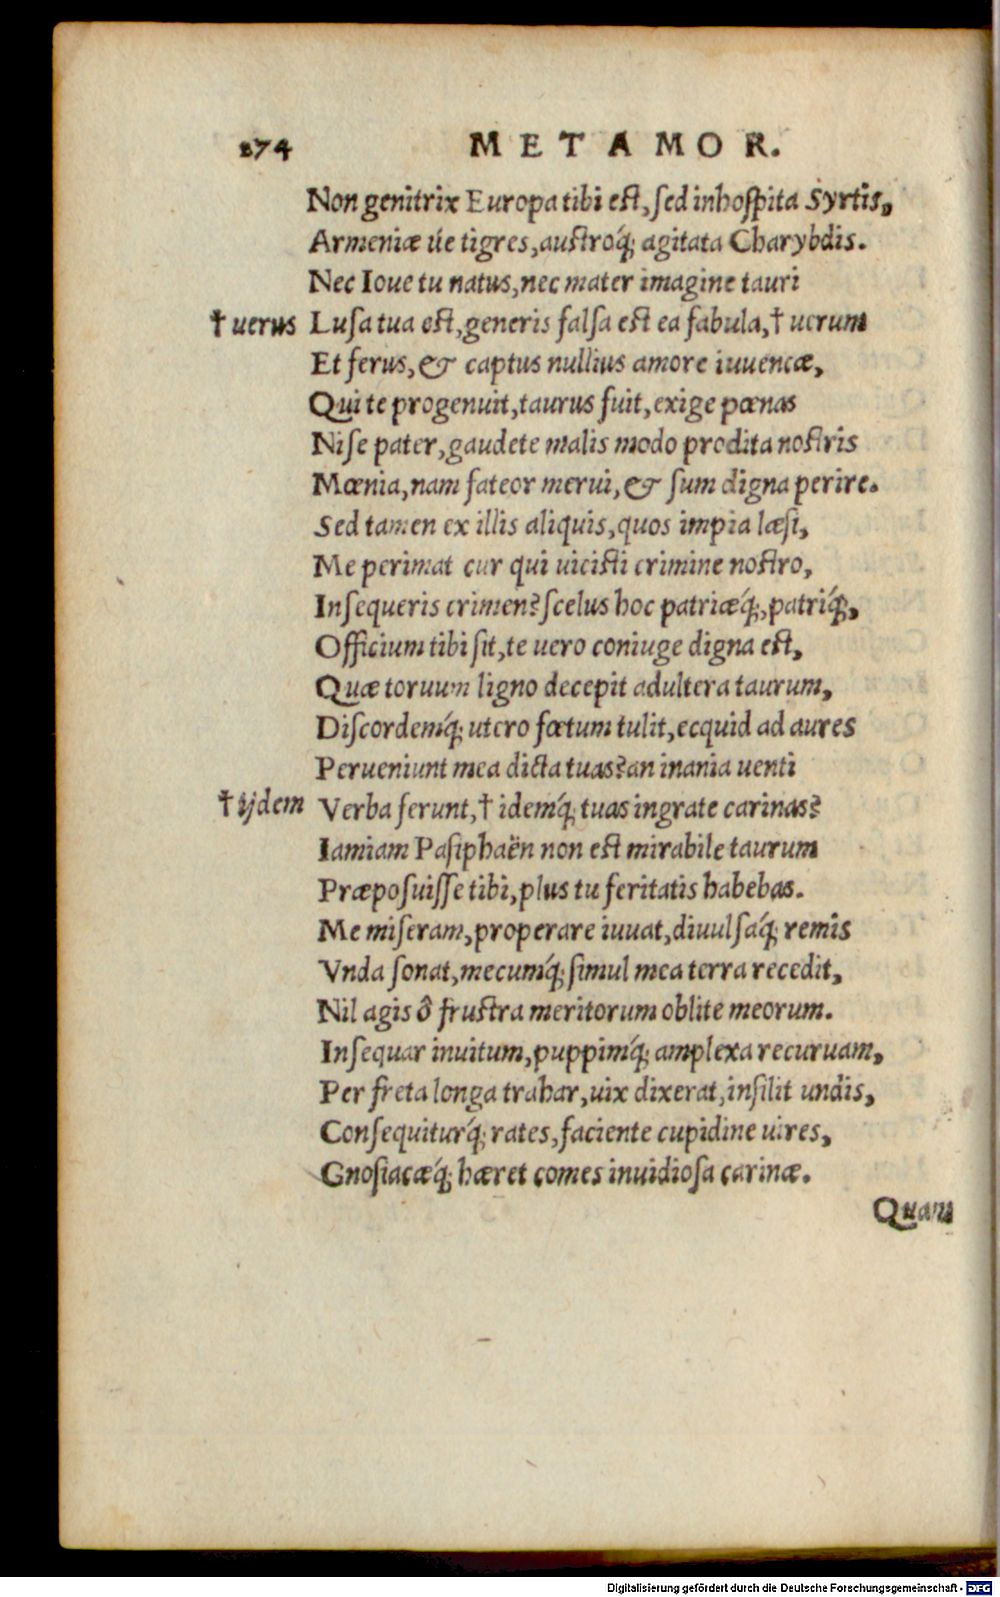 274 METAMOR.
Non genitrix Europa tibi est, sed inhospita Syrtis,
Armeniæ úe tigres, austroq́; agitata Charybdis.
Nec Ioue tu natus, nec mater imagine tauri
† uerus Lusa tua est, generis falsa est ea fabula, † uerum
Et ferus, & captus nullius amore iuuencæ,
Qui te progenuit, taurus fuit, exige pœnas
Nise pater, gaudete malis modo prodita nostris
Mœnia, nam fateor merui, & sum digna perire.
Sed tamen ex illis aliquis, quos impia læsi,
Me perimat cur qui uicisti crimine nostro,
Insequeris crimen? scelus hoc patriæq́;, patriq́;,
Officium tibi sit, te uero coniuge digna est,
Quæ toruum ligno decepit adultera taurum,
Discordemq́; utero fœtum tulit, ecquid ad aures
Perueniunt mea dicta tuas? an inania uenti
† ijdem Verba ferunt, † idemq́; tuas ingrate carinas?
Iamiam Pasiphaën non est mirabile taurum
Præposuisse tibi, plus tu feritatis habebas.
Me miseram, properare iuuat, diuulsaq́; remis
Vnda sonat, mecumq́; simul mea terra recedit,
Nil agis ô frustra meritorum oblite meorum.
Insequar inuitum, puppimq́; amplexa recuruam,
Per freta longa trahar, uix dixerat, insilit undis,
Consequiturq́; rates, faciente cupidine uires,
Gnosiacæq́; hæret comes inuidiosa carinæ.
Quam
Digitalisierung gefördert durch die Deutsche Forschungsgemeinschaft - DFG